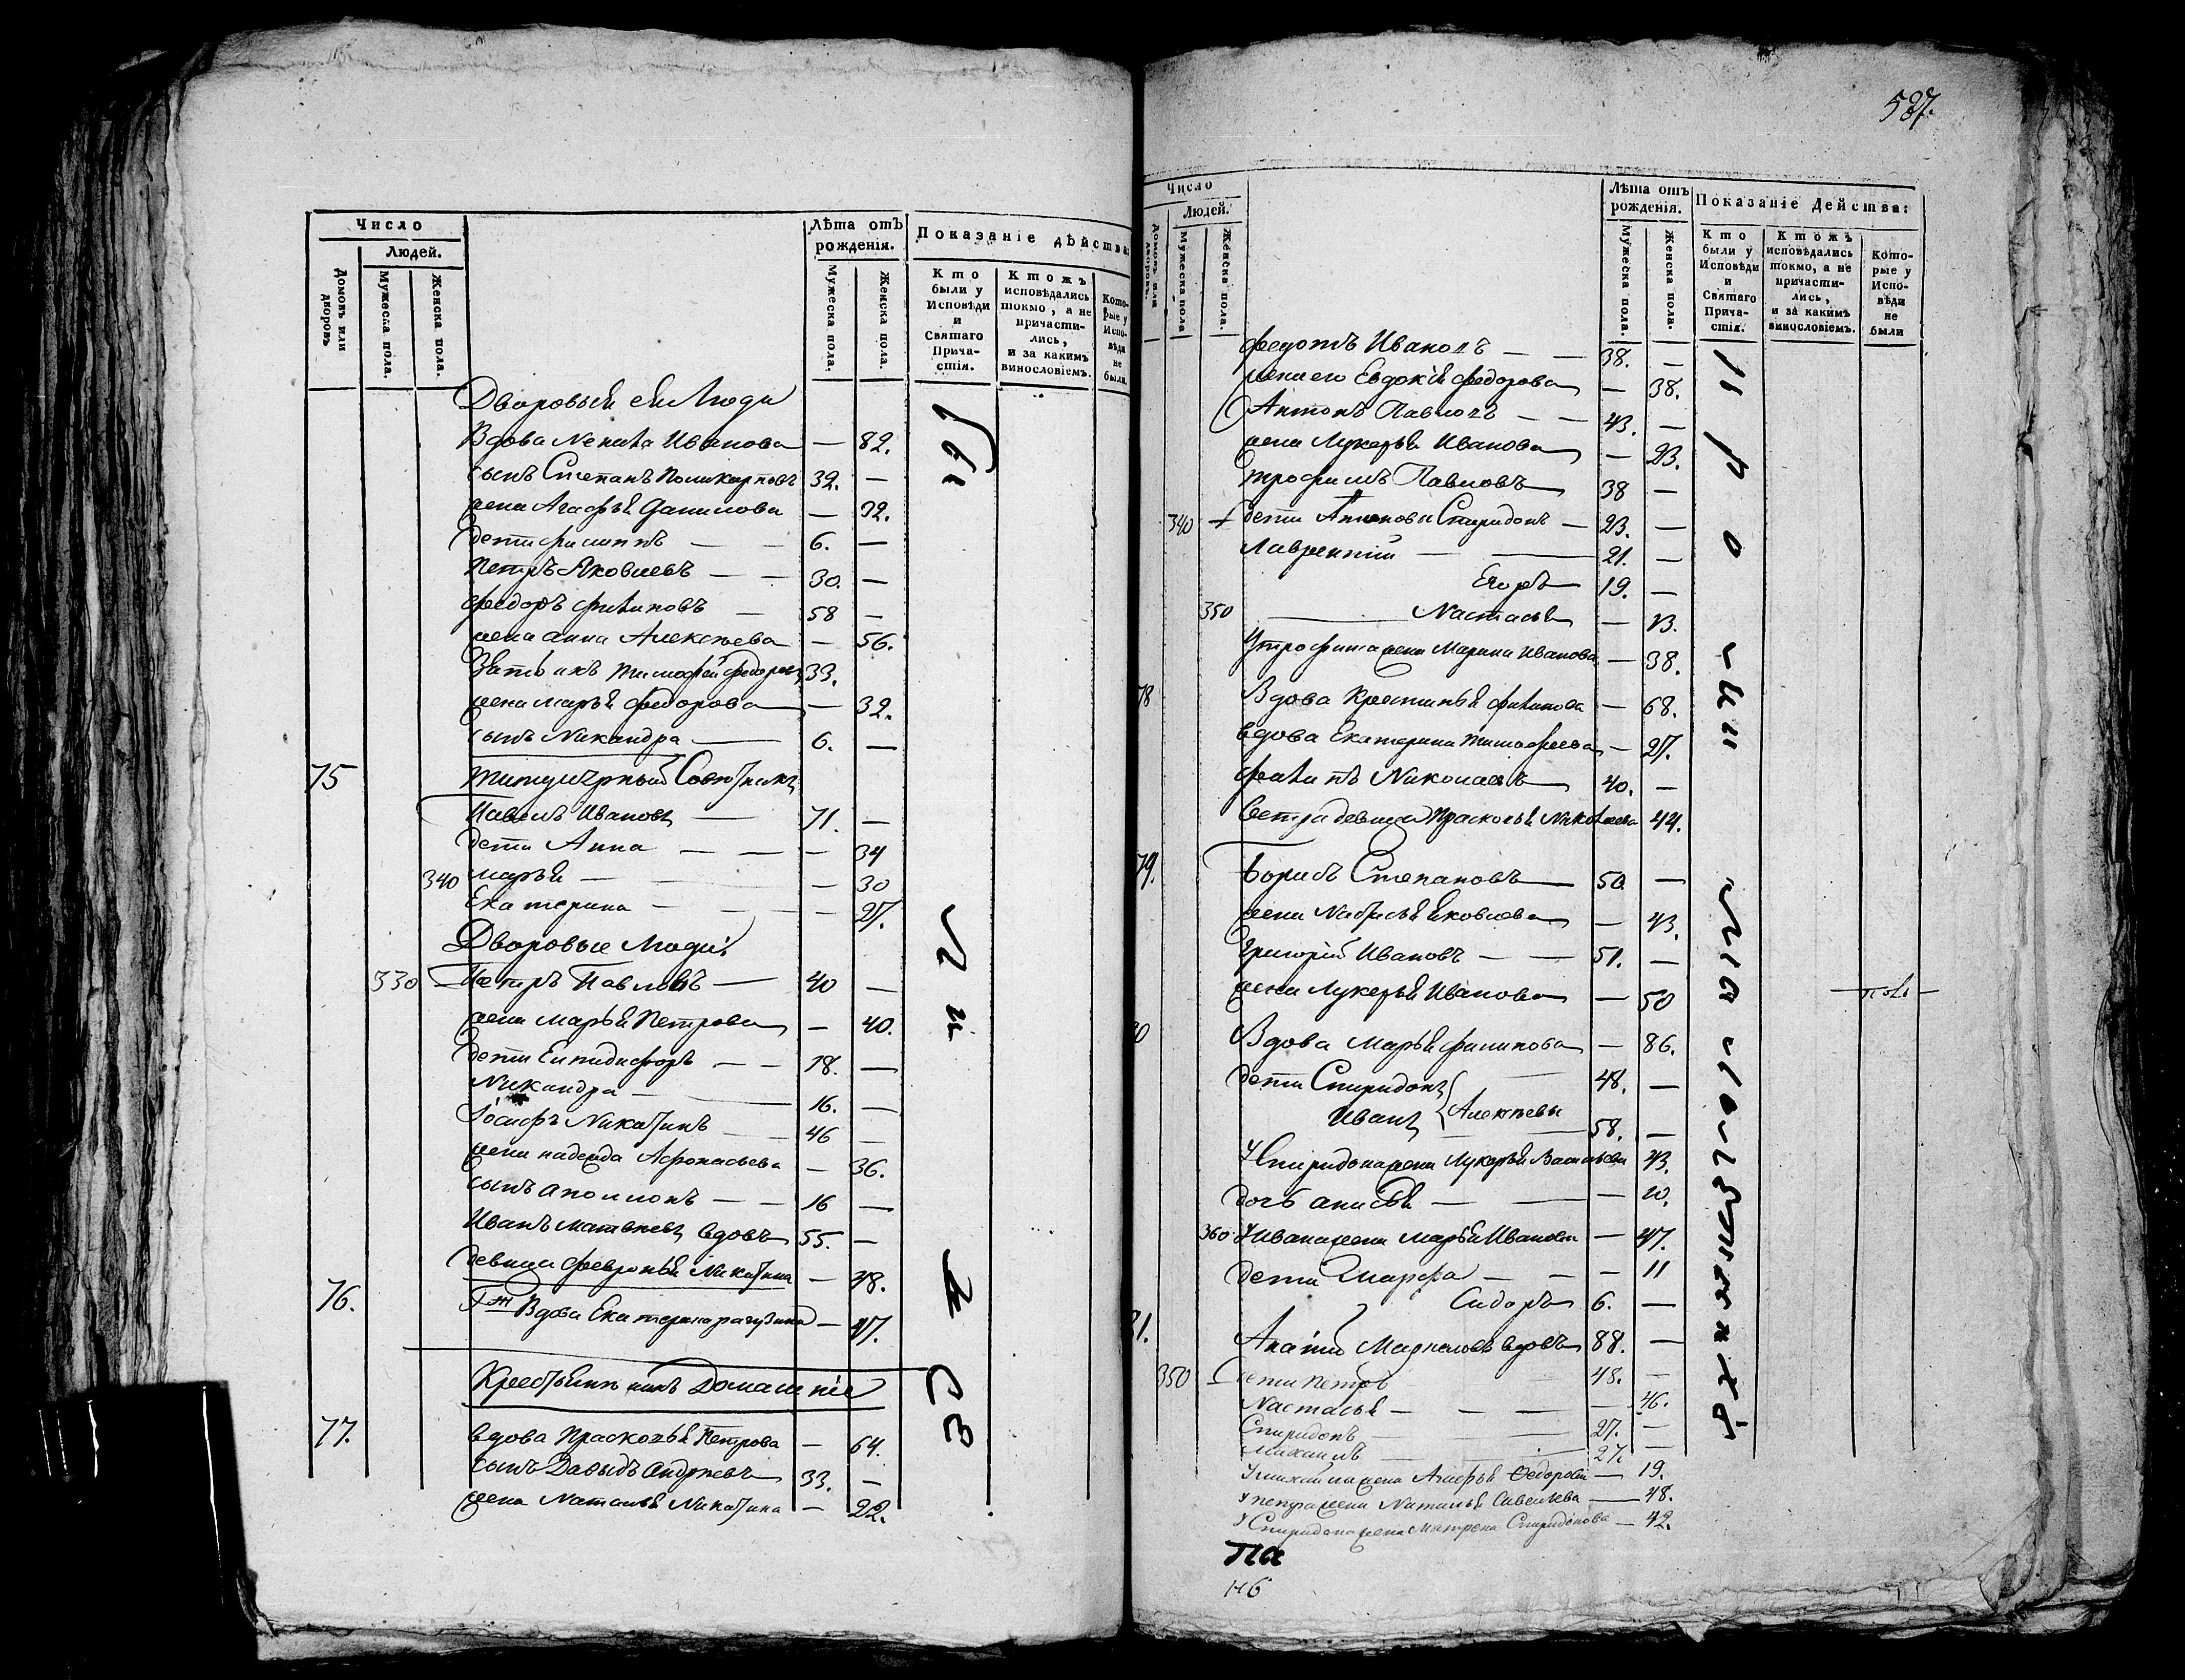 Число
Людей.
Домовъ или дворовъ
Мужеска пола.
Женска пола.
Лѣта отъ рожденія.
Мужеска пола.
Женска пола.
Показаніе дѣйства:
Кто были у Исповѣди и Святаго Прича-стія.
Ктожъ исповѣдались токмо, а не причасти-лись, и за какимъ винословіемъ.
Кото-рые у Испо-вѣди не были.
Дворовыя ея Люди
Вдова Иванова — 82.
сынъ Степанъ Поликарповъ 32. —
жена Агафья Данилова — 32.
дети Филиппъ — — 6. —
Петръ Яковлевъ — — 30. —
Федоръ Филиповъ — 58 —
жена Анна Алексѣева — 56.
Зать ихъ Тимофей Федоровъ 33.
жена Марья Федорова — 32.
сынъ Никандра — 6. —
75 Титулярный Советникъ
Павелъ Ивановъ — 71. —
дети Анна — — — 34
340 Марья — — 30
Екатерина — — — 27.
Дворовые Люди:
330 Петръ Павловъ — 40 —
жена Марья Петрова — 40.
дети Елпидифоръ — — 18. —
Никандра — 16. —
Іосифъ Никитинъ — 46 —
жена Надежда Афонасьева — 36.
сынъ Аполлонъ — — 16 —
Иванъ Матвѣевъ вдовъ 55. —
девица Февронья Никитина — 48.
76. Вдова Екатерина — 47.
Крестьяне Домашніе
77. вдова Прасковья Петрова — 64.
сынъ Давыдъ Андреевъ 33. —
жена Наталья Никитина — 22.
537.
Число
Людей.
Домовъ или дворовъ.
Мужеска пола
Женска пола.
Лѣта отъ рожденія.
Мужеска пола.
Женска пола.
Показаніе Действа:
Кто были у Исповѣди и Святаго Прича-стія.
Ктожъ исповѣдались токмо, а не причасти-лись, и за какимъ винословіемъ.
Кото-рые у Испо-вѣди не были
Федотъ Ивановъ — — 38. —
жена его Евдокія Федорова — 38.
Антонъ Павловъ — — 43. —
жена Лукерья Иванова — 23.
Трофимъ Павловъ 38 —
340 дети Антоновы Спиридонъ — 23. —
Лаврентій — — 21. —
Егоръ — 19. —
350 Настасья — 13.
У трофима жена Марина Иванова — 38.
78 Вдова Крестинья Филипова — 68.
вдова Екатерина Тимофеева — 27.
Филипъ Николаевъ 40. —
Сестра девица Прасковья Николаева 44.
79. Борисъ Степановъ — 50 —
жена Настасья Яковлева — 43.
Григорій Ивановъ — — 51. —
жена Лукерья Иванова — 50
Вдова Марья Филипова — 86.
дети Спиридонъ 48. —
Иванъ Алексѣевы 58. —
У Спиридона жена Лукерья Васильева 43.
дочь Анисья — — — 10.
360 У Ивана жена Марья Иванова — 47.
дети Марфа — — — 11
Сидоръ 6. —
81. вдовъ 88. —
350 дети Петръ 48. —
Настасья — — — — 46.
Спиридонъ — — 27. —
Михаилъ — 27. —
У Михаила жена Агафья Федорова — 19.
У Петра жена Наталья Савельева — 48.
У Спиридона жена Матрена Спиридонова — 42.